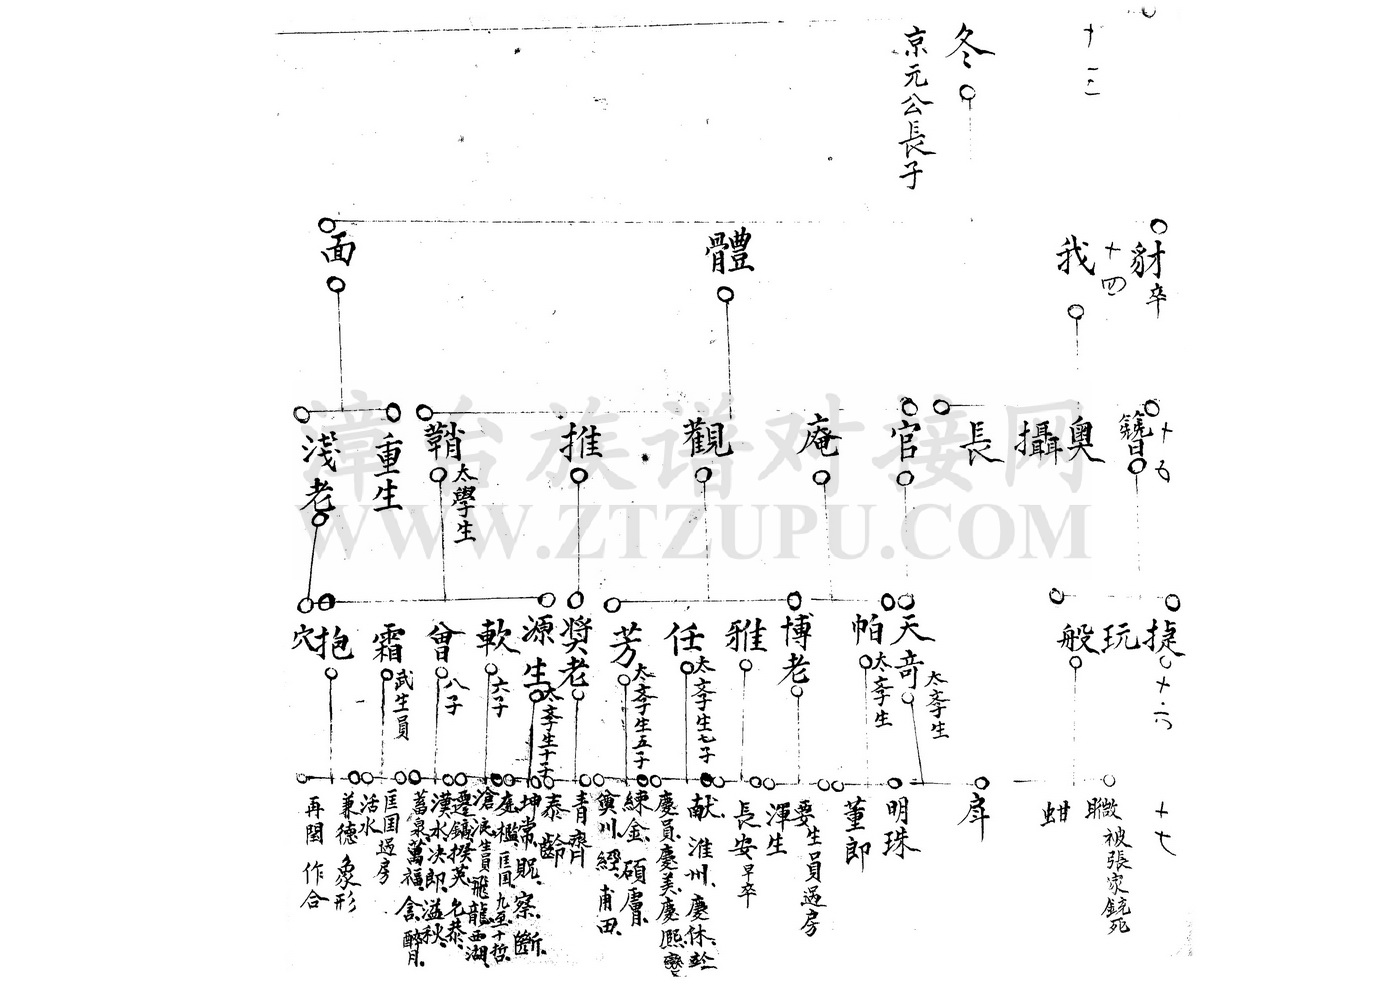 十三
冬
京元公長子
豺卒
十四
我
體
面
十五
簪
奧
攝
長
官
庵
觀
推
鞘
太學生
重生
淺老
捷
十六
玩
般
天奇
太斈生
帕
太斈生
博老
雅
任
太斈生七子
芳
太斈生五子
奨老
源生
太斈生十子
軟
六子
會
八子
霜
武生員
抱
穴
十七
被張家銃死
蚶
房
明珠
董郎
要生員過房
渾生
長安早卒
献 淮州 慶休
慶員 慶美 慶熙
練金 碩膚
奠川 經 甫田
青齊
泰齡
坤常 眤 察 斷
庭檻 匡国
滄浹生員 飛龍 西湖
遷鎬 揆英
漢水 决郎 溢秋
蓄泉 萬福 含 醉月
匡国過房
活水
兼德 象形
再閏 作合
漳台族谱对接网
WWW.ZTZUPU.COM